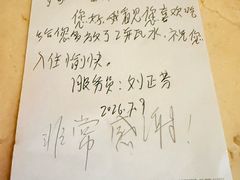 您好，我看见您喜欢喝
给您多放了2瓶水，祝您
入住愉快。
服务员：刘正芳
2026.7.9
非常感谢！